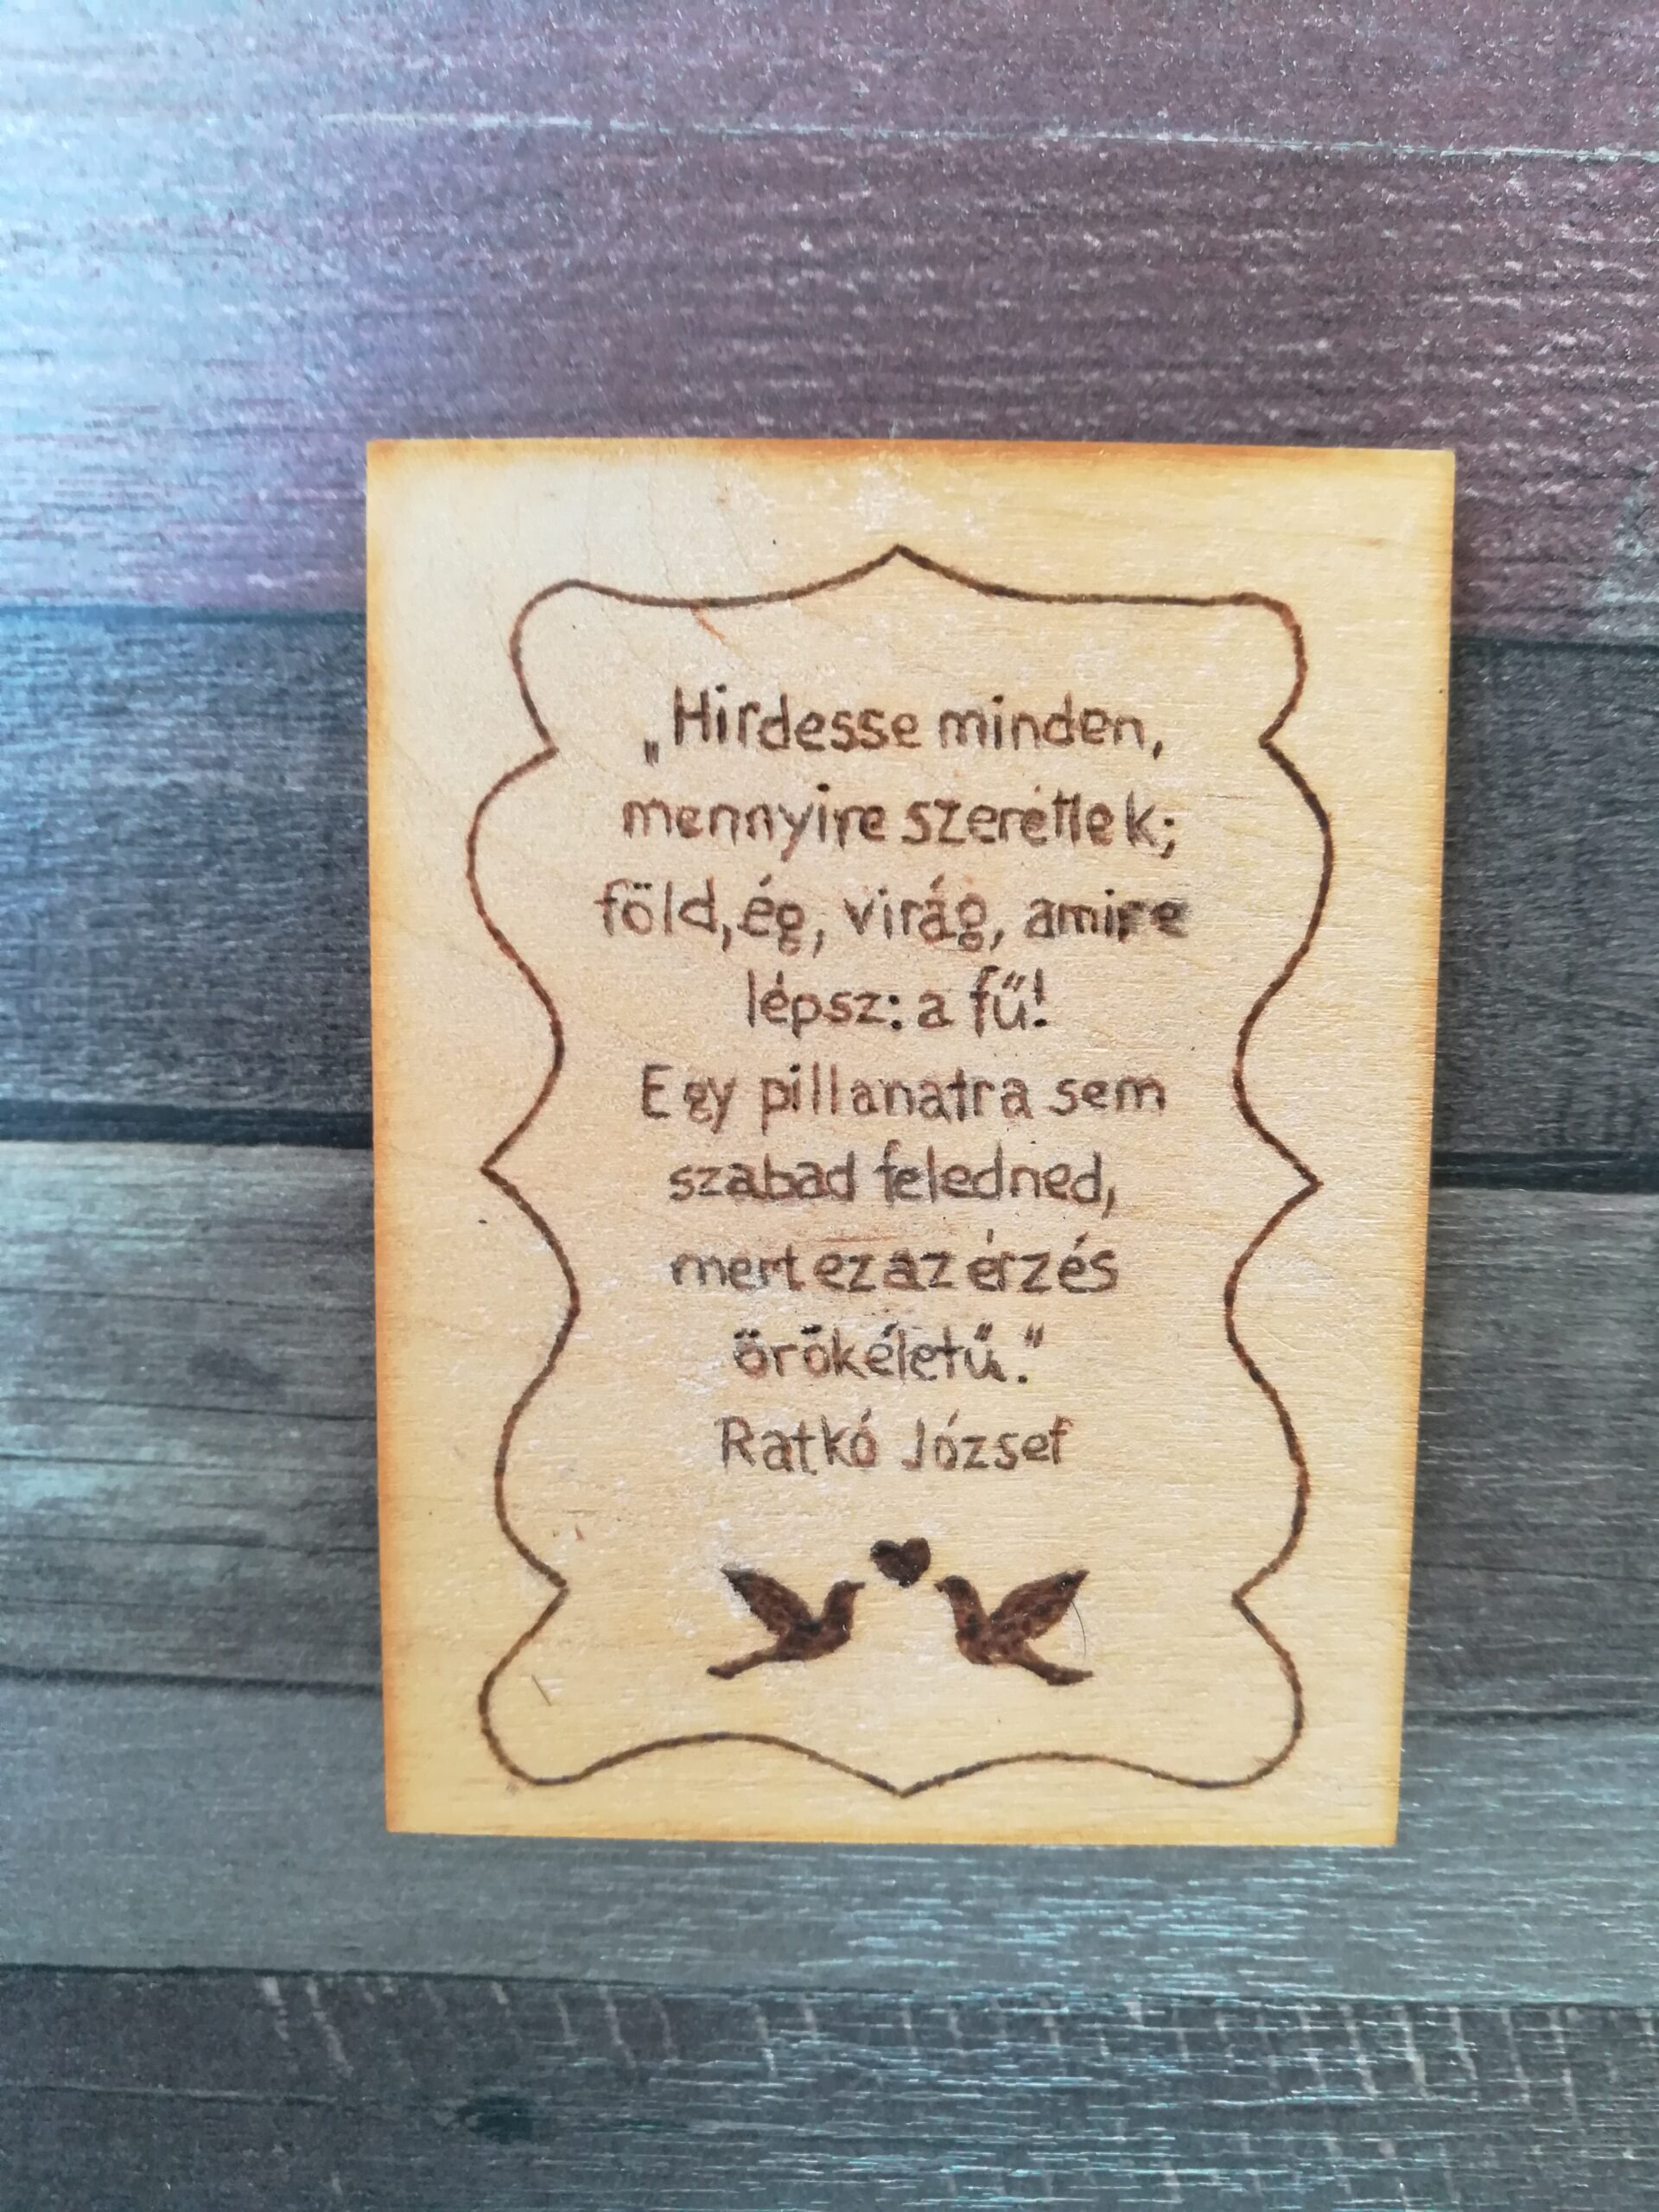 „Hirdesse minden,
mennyire szeretlek;
föld, ég, virág, amire
lépsz: a fű!
Egy pillanatra sem
szabad feledned,
mert ez az érzés
örökéletű."
Ratkó József